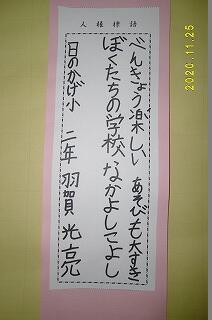 人権標語
べんきょう楽しい あそびも大すき
ぼくたちの学校、なかよしこよし
日のかげ小 二年 羽賀 光亮
2020.11.25